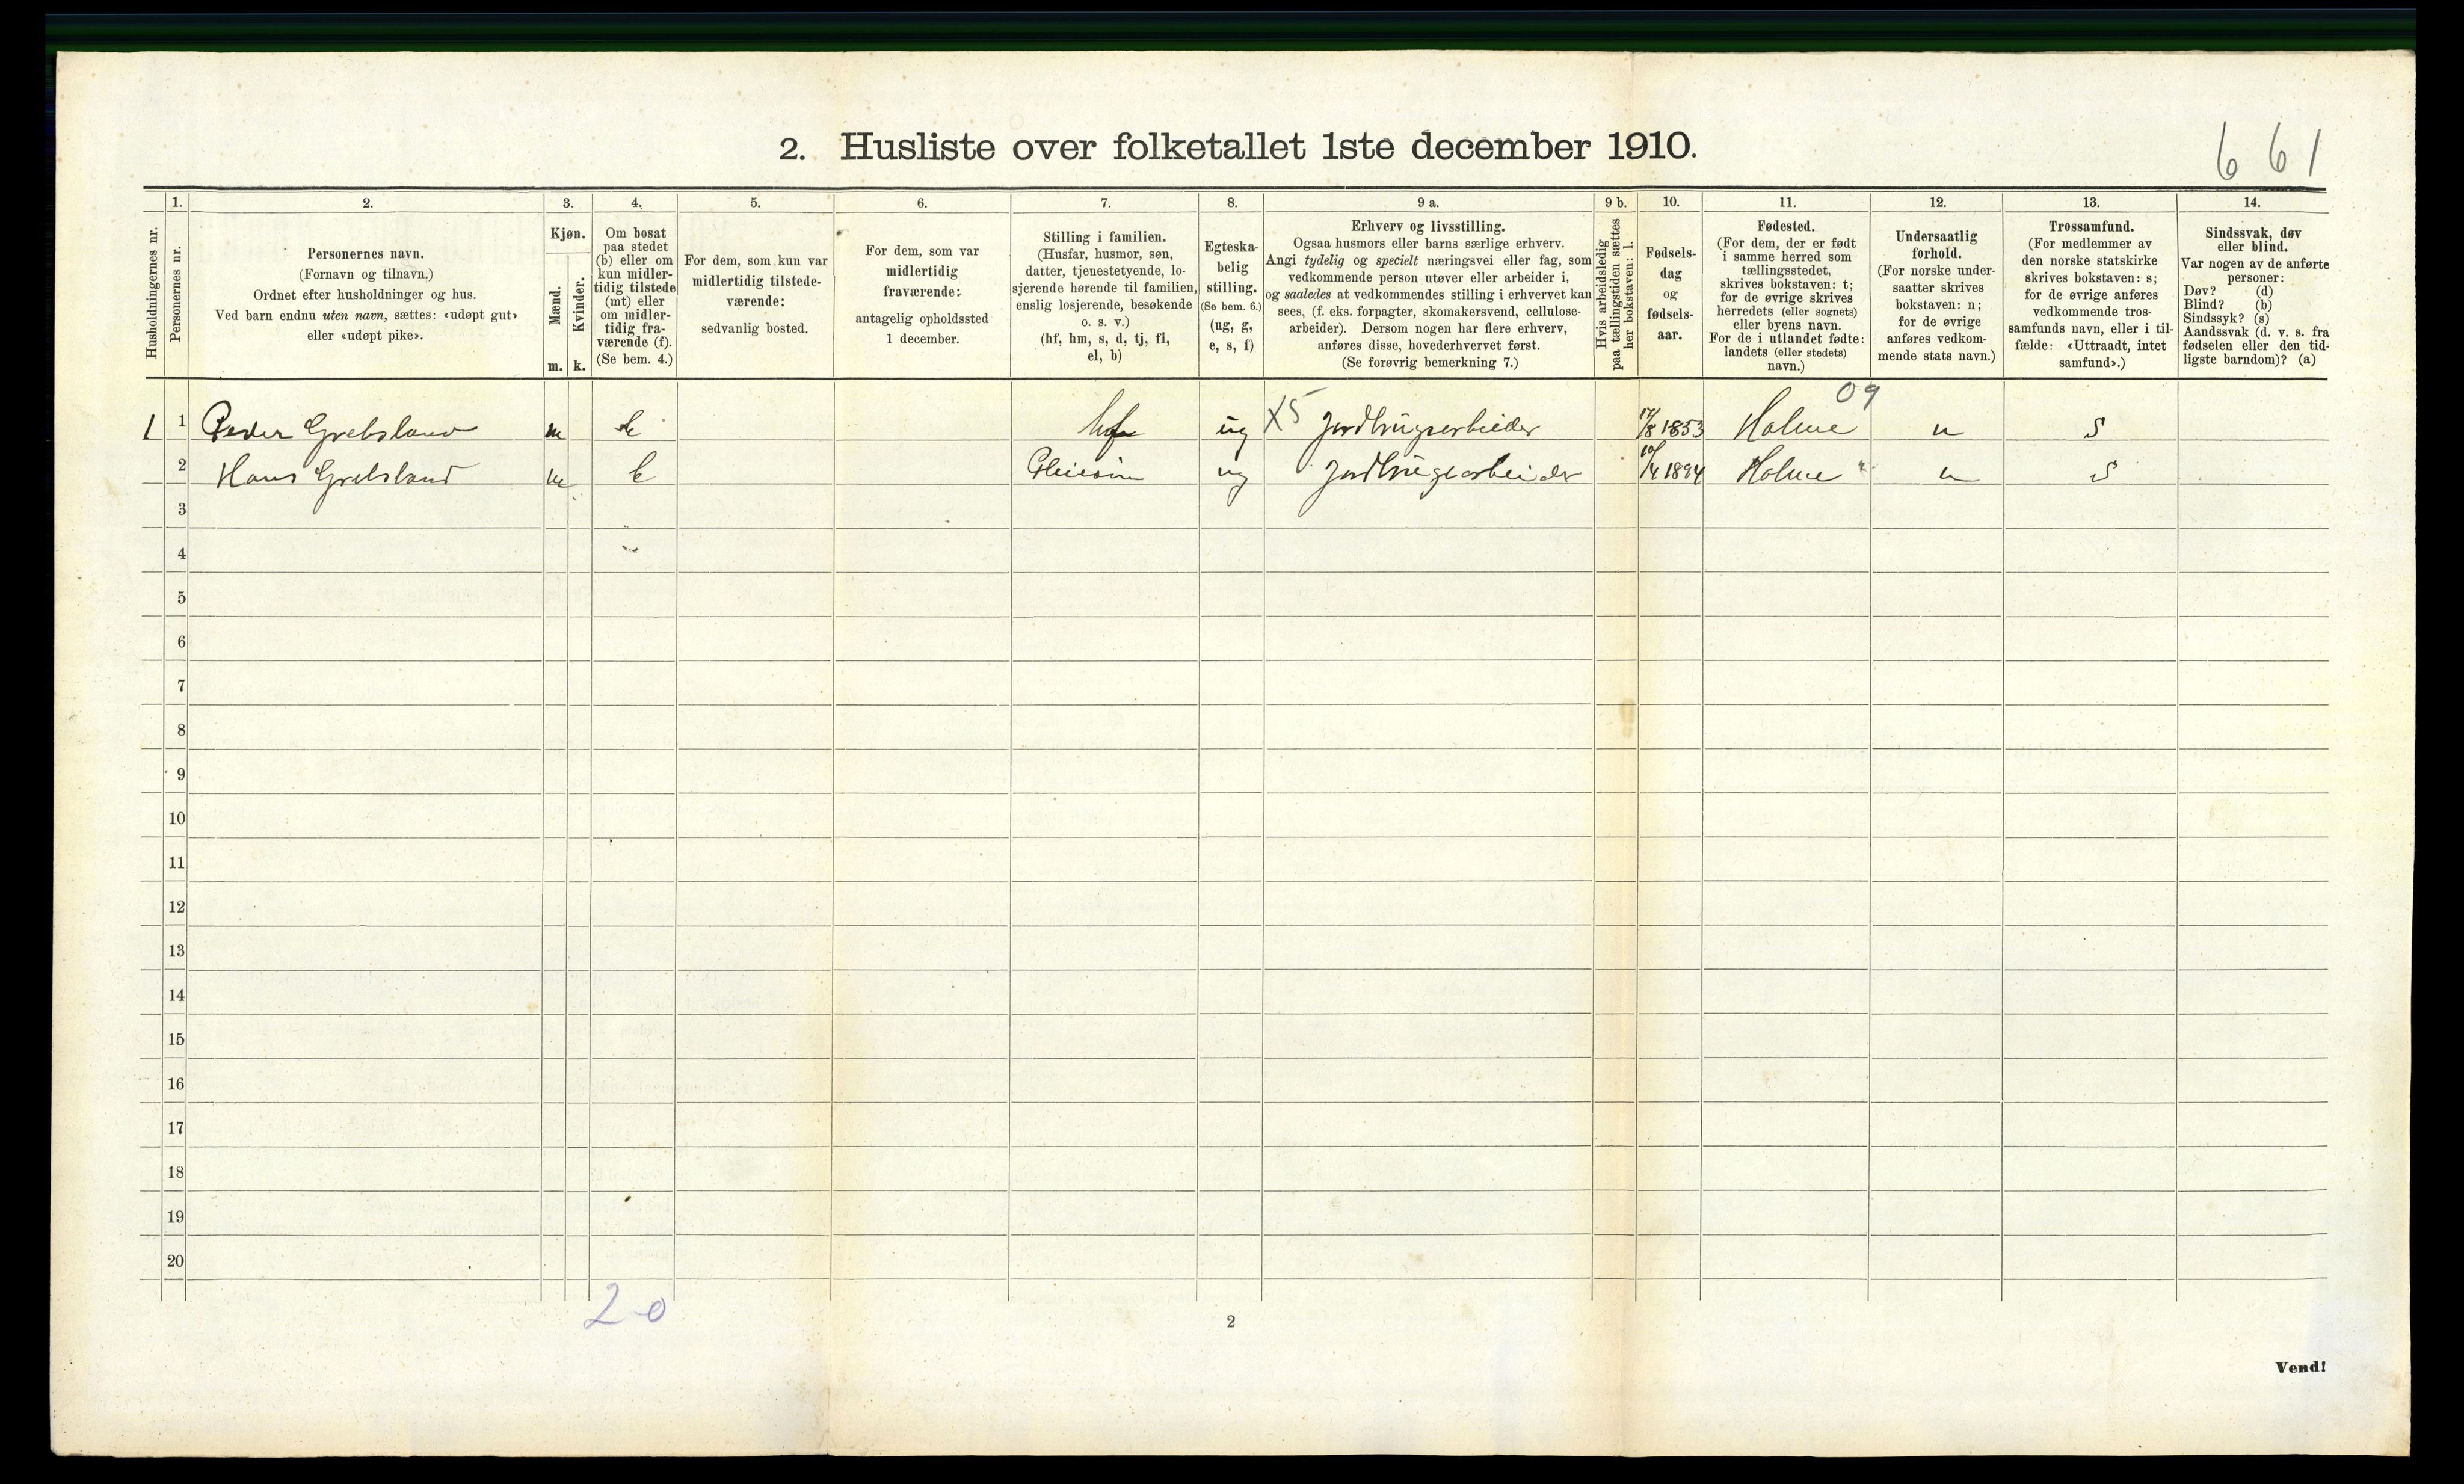 2. Husliste over folketallet 1ste december 1910.
6 61
Husholdningernes nr.
1.
Personernes nr.
2.
Personernes navn.
(Fornavn og tilnavn.)
Ordnet efter husholdninger og hus.
Ved barn endnu uten navn, sættes: «udøpt gut»
eller «udøpt pike».
3.
Kjøn.
Mænd.
Kvinder.
m. k.
4.
Om bosat
paa stedet
(b) eller om
kun midler-
tidig tilstede
(mt) eller
om midler-
tidig fra-
værende (f).
(Se bem. 4.)
5.
For dem, som kun var
midlertidig tilstede-
værende:
sedvanlig bosted.
6.
For dem, som var
midlertidig
fraværende:
antagelig opholdssted
1 december.
7.
Stilling i familien.
(Husfar, husmor, søn,
datter, tjenestetyende, lo-
sjerende hørende til familien,
enslig losjerende, besøkende
o. s. v.)
(hf, hm, s, d, tj, fl,
el, b)
8.
Egteska-
belig
stilling.
(Se bem. 6.)
(ug, g,
e, s, f)
9 a.
Erhverv og livsstilling.
Ogsaa husmors eller barns særlige erhverv.
Angi tydelig og specielt næringsvei eller fag, som
vedkommende person utøver eller arbeider i,
og saaledes at vedkommendes stilling i erhvervet kan
sees, (f. eks. forpagter, skomakersvend, cellulose-
arbeider). Dersom nogen har flere erhverv,
anføres disse, hovederhvervet først.
(Se forøvrig bemerkning 7.)
9 b.
Hvis arbeidsledig
paa tællingstiden sættes
her bokstaven: l.
10.
Fødsels-
dag
og
fødsels-
aar.
11.
Fødested.
(For dem, der er født
i samme herred som
tællingsstedet,
skrives bokstaven: t;
for de øvrige skrives
herredets (eller sognets)
eller byens navn.
For de i utlandet fødte:
landets (eller stedets)
navn.)
12.
Undersaatlig
forhold.
(For norske under-
saatter skrives
bokstaven: n;
for de øvrige
anføres vedkom-
mende stats navn.)
13.
Trossamfund.
(For medlemmer av
den norske statskirke
skrives bokstaven: s;
for de øvrige anføres
vedkommende tros-
samfunds navn, eller i til-
fælde: «Uttraadt, intet
samfund».)
14.
Sindssvak, døv
eller blind.
Var nogen av de anførte
personer:
Døv? (d)
Blind? (b)
Sindssyk? (s)
Aandssvak (d. v. s. fra
fødselen eller den tid-
ligste barndom)? (a)
09
1 1 Peder Grebsland m b hf ug X5 Jordbrugsarbeider 17/8 1853 Holme n S
2 Hans Grebsland m b Pleiesøn ug Jordbrugsarbeider 10/4 1894 Holme " n S
3
4
5
6
7
8
9
10
11
12
13
14
15
16
17
18
19
20
2-0
2
Vend!